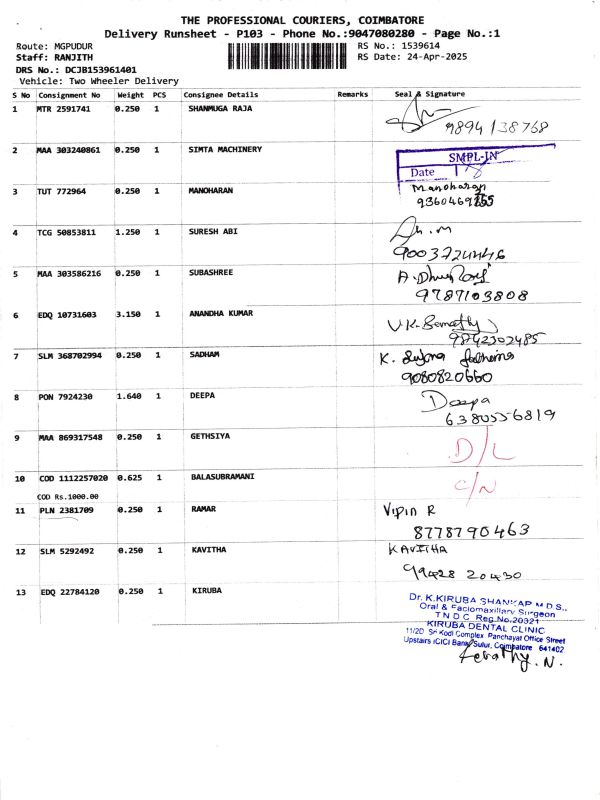 THE PROFESSIONAL COURIERS, COIMBATORE
Delivery Runsheet - P103 - Phone No.:9047080280 - Page No.:1
Route: MGPUDUR RS No.: 1539614
Staff: RANJITH RS Date: 24-Apr-2025
DRS No.: DCJB153961401
Vehicle: Two Wheeler Delivery
S No Consignment No Weight PCS Consignee Details Remarks Seal & Signature
1 MTR 2591741 0.250 1 SHANMUGA RAJA
9894138768
2 MAA 303240861 0.250 1 SIMTA MACHINERY
SMPL-IN
Date
3 TUT 772964 0.250 1 MANOHARAN Manoharan
4 TCG 50853811 1.250 1 SURESH ABI
9003724446
5 MAA 303586216 0.250 1 SUBASHREE
9787103808
6 EDQ 10731603 3.150 1 ANANDHA KUMAR
9842302485
7 SLM 368702994 0.250 1 SADHAM
9080820660
8 PON 7924230 1.640 1 DEEPA Deepa
6380556819
9 MAA 869317548 0.250 1 GETHSIYA D/L
10 COD 1112257020 0.625 1 BALASUBRAMANI C/N
COD Rs.1000.00
11 PLN 2381709 0.250 1 RAMAR Vipin R
8778790463
12 SLM 5292492 0.250 1 KAVITHA KAVITHA
99428 20430
13 EDQ 22784120 0.250 1 KIRUBA
Dr. K.KIRUBA SHANKAR M.D.S.,
Oral & Faciomaxillary Surgeon
T N D C Reg No.20321
KIRUBA DENTAL CLINIC
11/2D Sri Kodi Complex Panchayat Office Street
Upstairs ICICI Bank, Sulur, Coimbatore 641402